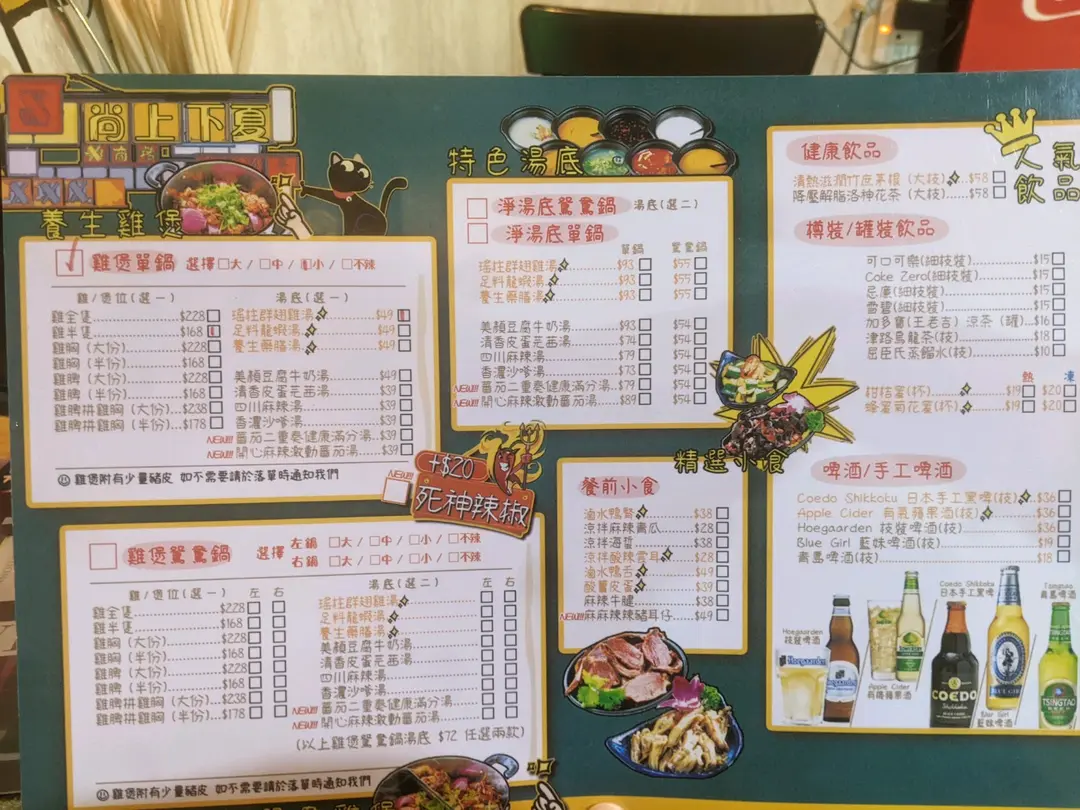 尚上下夏
養生雞煲
雞煲單鍋 選擇 □大 / □中 / □小 / □不辣
雞/煲位(選一)
雞全隻 $228
雞半隻 $168
雞胸 (大份) $228
雞胸 (半份) $168
雞脾 (大份) $228
雞脾 (半份) $168
雞脾拼雞胸 (大份) $238
雞脾拼雞胸 (半份) $178
湯底(選一)
瑤柱群翅雞湯 $49
足料龍蝦湯 $49
養生藥膳湯 $49
美顏豆腐牛奶湯 $49
清香皮蛋芫茜湯 $39
四川麻辣湯 $39
香濃沙嗲湯 $39
NEW!!! 番茄二重奏健康滿分湯 $39
NEW!!! 開心麻辣激動番茄湯 $39
雞煲附有少量豬皮 如不需要請於落單時通知我們
NEW!!!
+$20
死神辣椒
雞煲鴛鴦鍋 選擇
左鍋 □大 / □中 / □小 / □不辣
右鍋 □大 / □中 / □小 / □不辣
雞/煲位(選一) 左 右
雞全隻 $228
雞半隻 $168
雞胸 (大份) $228
雞胸 (半份) $168
雞脾 (大份) $228
雞脾 (半份) $168
雞脾拼雞胸 (大份) $238
雞脾拼雞胸 (半份) $178
湯底(選二) 左 右
瑤柱群翅雞湯
足料龍蝦湯
養生藥膳湯
美顏豆腐牛奶湯
清香皮蛋芫茜湯
四川麻辣湯
香濃沙嗲湯
NEW!!! 番茄二重奏健康滿分湯
NEW!!! 開心麻辣激動番茄湯
(以上雞煲鴛鴦鍋湯底 $72 任選兩款)
雞煲附有少量豬皮 如不需要請於落單時通知我們
特色湯底
淨湯底鴛鴦鍋 湯底(選二)
淨湯底單鍋
單鍋 鴛鴦鍋
瑤柱群翅雞湯 $93 $55
足料龍蝦湯 $93 $55
養生藥膳湯 $93 $55
美顏豆腐牛奶湯 $93 $54
清香皮蛋芫茜湯 $74 $54
四川麻辣湯 $79 $54
香濃沙嗲湯 $73 $54
NEW!!! 番茄二重奏健康滿分湯 $79 $54
NEW!!! 開心麻辣激動番茄湯 $89 $54
精選小食
餐前小食
滷水鴨腎 $38
涼拌麻辣青瓜 $28
涼拌海蜇 $38
涼拌酸辣雲耳 $28
滷水鴨舌 $49
酸薑皮蛋 $39
麻辣牛腱 $38
NEW!!! 麻麻辣辣豬耳仔 $49
人氣飲品
健康飲品
清熱滋潤竹蔗茅根 (大枝) $58
降壓解脂洛神花茶 (大枝) $58
樽裝/罐裝飲品
可口可樂(細枝裝) $15
Coke Zero(細枝裝) $15
忌廉(細枝裝) $15
雪碧(細枝裝) $15
加多寶(王老吉) 涼茶 (罐) $16
津路烏龍茶(枝) $18
屈臣氏蒸餾水(枝) $10
熱 凍
柑桔蜜(杯) $19 $20
蜂蜜菊花蜜(杯) $19 $20
啤酒/手工啤酒
Coedo Shikkoku 日本手工黑啤(枝) $36
Apple Cider 有氣蘋果酒(枝) $36
Hoegaarden 枝裝啤酒(枝) $36
Blue Girl 藍妹啤酒(枝) $19
青島啤酒(枝) $18
Hoegaarden
枝裝啤酒
Apple Cider
有氣蘋果酒
Coedo Shikkoku
日本手工黑啤
COEDO
Shikkoku
Blue Girl
藍妹啤酒
Tsingtao
青島啤酒
TSINGTAO